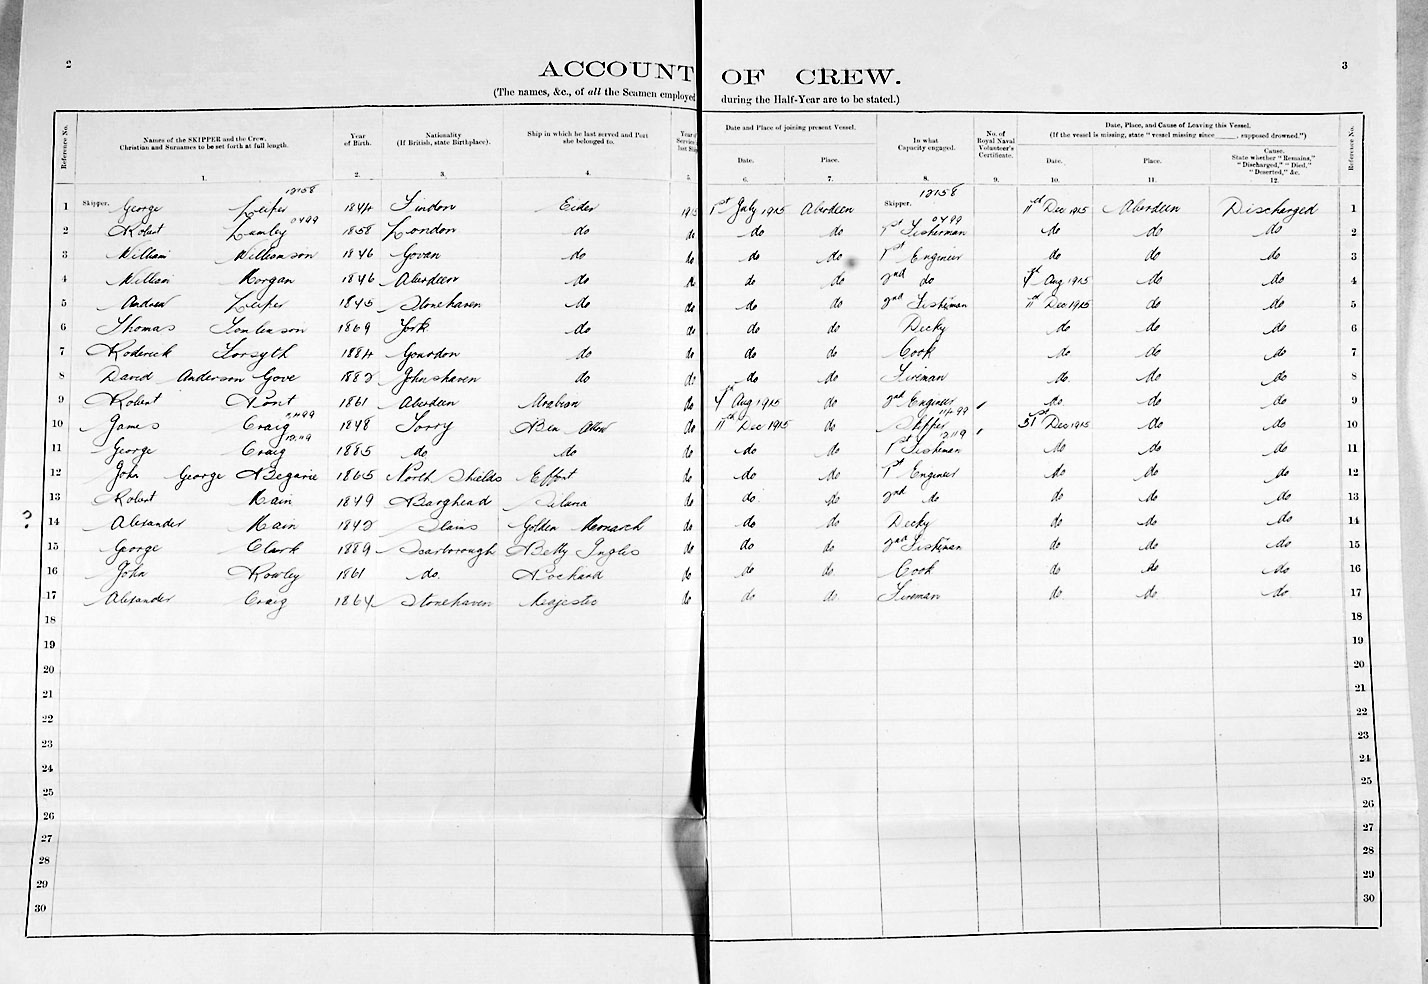 2
3
ACCOUNT OF CREW.
(The names, &c., of all the Seamen employed during the Half-Year are to be stated.)
Reference No.
Names of the SKIPPER and the Crew. Christian and Surnames to be set forth at full length. 1.
Year of Birth. 2.
Nationality (If British, state Birthplace). 3.
Ship in which he last served and Port she belonged to. 4.
5.
Date and Place of joining present Vessel.
Date. 6.
Place. 7.
In what Capacity engaged. 8.
No. of Royal Naval Volunteer's Certificate. 9.
Date, Place, and Cause of Leaving this Vessel. (If the vessel is missing, state "vessel missing since ____, supposed drowned.")
Date. 10.
Place. 11.
Cause. State whether "Remains," "Discharged," "Died," "Deserted," &c. 12.
Reference No.
12158 12158
1 Skipper. George Leiper 1844 Findon Eider 1915 1st July 1915 Aberdeen Skipper. 11th Dec 1915 Aberdeen Discharged 1
0499 0499
2 Robert Lumley 1858 London do do do do 1st Fisherman do do do 2
3 William Williamson 1846 Govan do do do do 1st Engineer do do do 3
4 William Morgan 1846 Aberdeen do do do 2nd do Aug 1915 do do 4
5 Andrew Leiper 1845 Stonehaven do do do do 2nd Fisherman 11th Dec 1915 do do 5
6 Thomas Tomlinson 1869 York do do do do Decky do do do 6
7 Roderick Forsyth 1884 Gourdon do do do do Cook do do do 7
8 David Anderson Gove 1882 Johnshaven do do do do Fireman do do do 8
9 Robert 1861 Aberdeen Arabian do 4th Aug 1915 do 2nd Engineer do do do 9
10 James Craig 1848 Torry Ben do 11th Dec 1915 do Skipper 31st Dec 1915 do do 10
11 George Craig 1885 do do do do do 1st Fisherman do do do 11
12 John George 1865 North Shields Effort do do do 1st Engineer do do do 12
13 Robert Main 1849 Burghead do do do 2nd do do do do 13
14 Alexander Main 1842 Slains Golden Monarch do do do Decky do do do 14
15 George Clark 1889 Scarborough Betty Inglis do do do 2nd Fisherman do do do 15
16 John Rowley 1861 do Lochard do do do Cook do do do 16
17 Alexander Craig 1864 Stonehaven Majestic do do do Fireman do do do 17
18 18
19 19
20 20
21 21
22 22
23 23
24 24
25 25
26 26
27 27
28 28
29 29
30 30